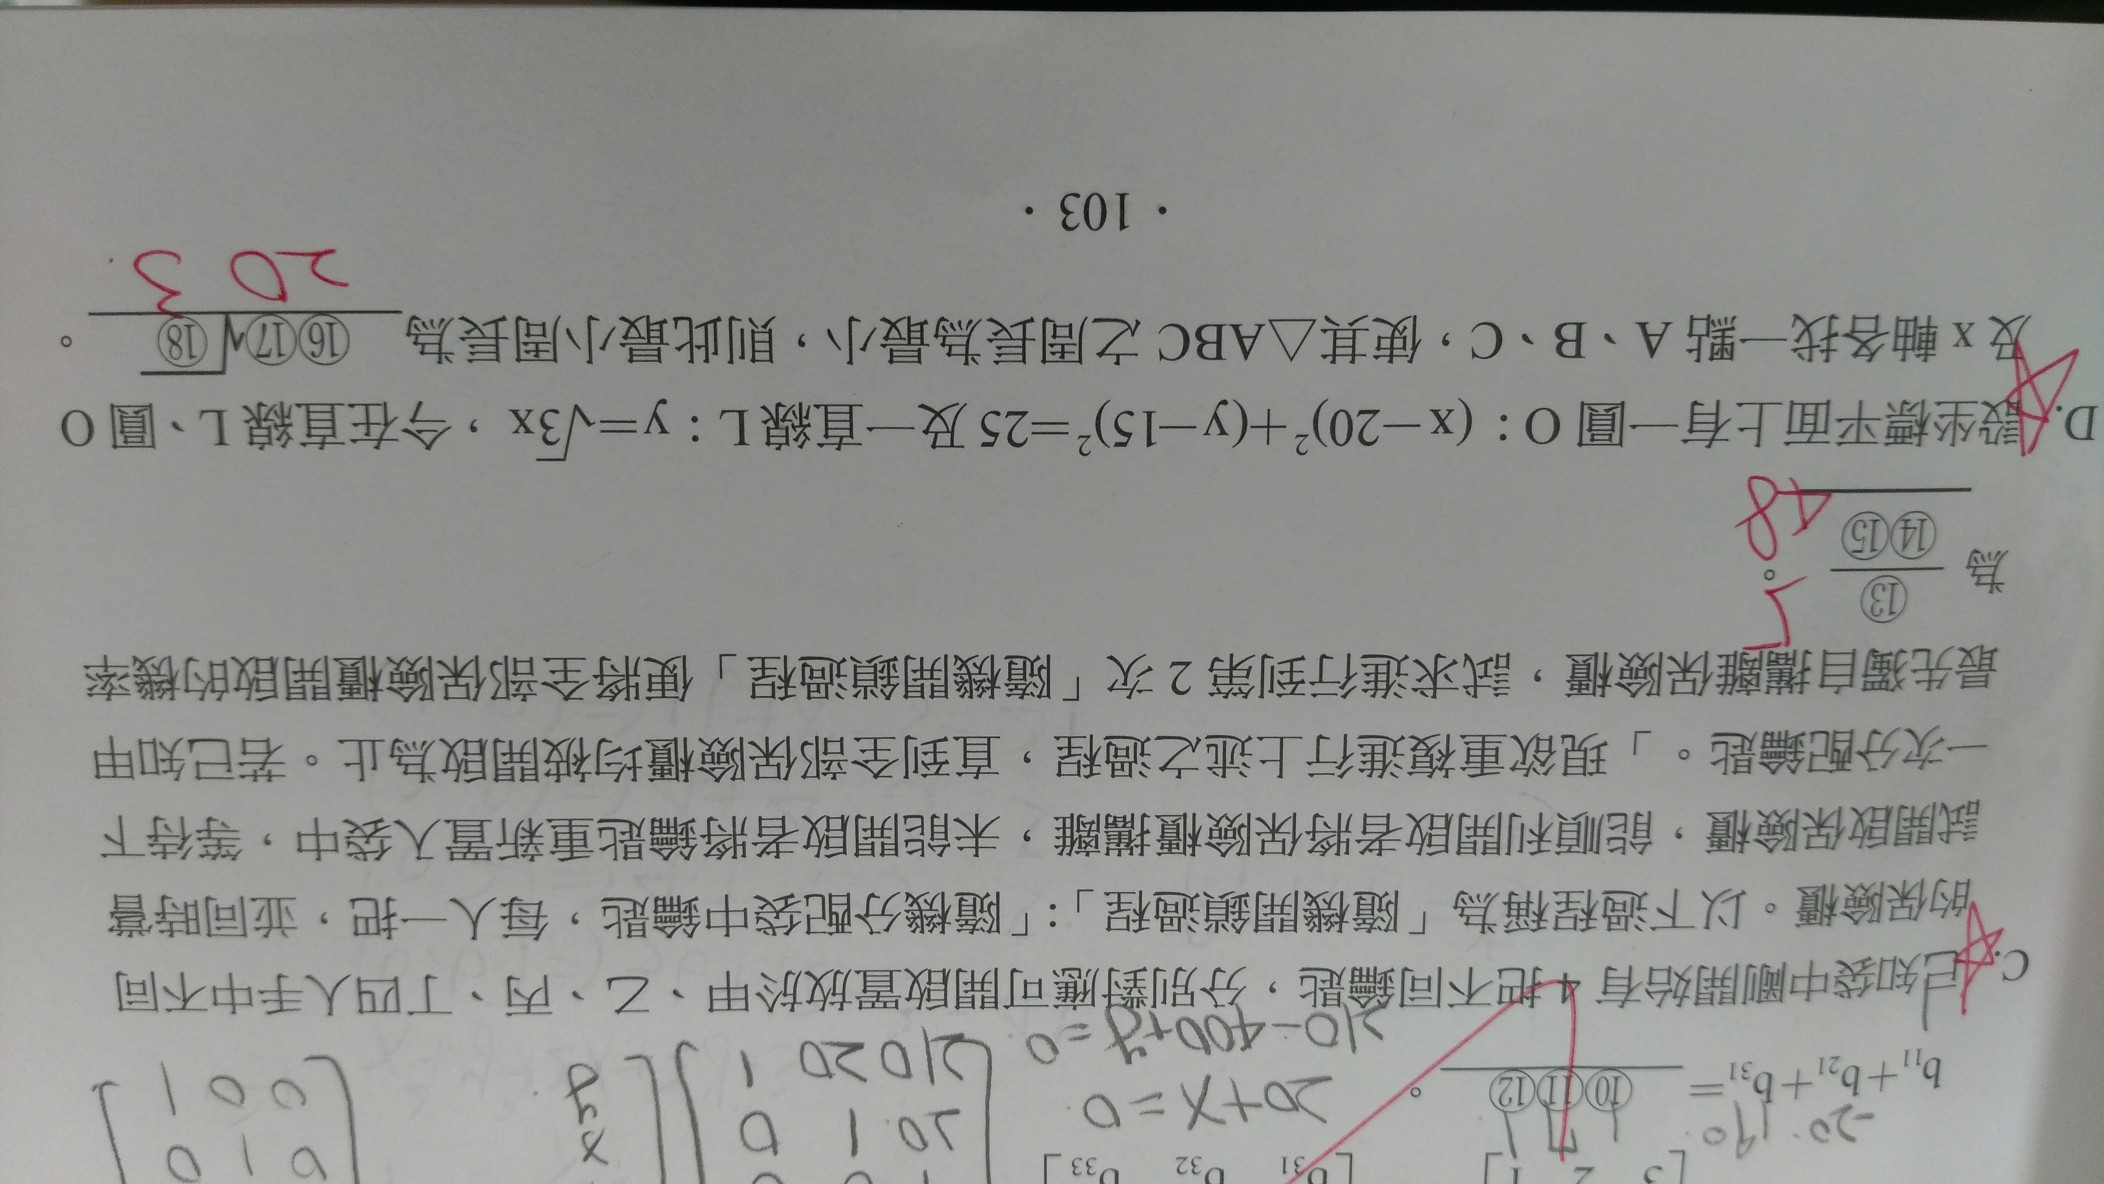 b₁₁+b₂₁+b₃₁= ⑩⑪⑫ 。
20+x=0
210-400+y=0
C. 已知袋中剛開始有 4 把不同鑰匙，分別對應可開啟置放於甲、乙、丙、丁四人手中不同
的保險櫃。以下過程稱為「隨機開鎖過程」：「隨機分配袋中鑰匙，每人一把，並同時嘗
試開啟保險櫃，能順利開啟者將保險櫃攜離，未能開啟者將鑰匙重新置入袋中，等待下
一次分配鑰匙。」現欲重複進行上述之過程，直到全部保險櫃均被開啟為止。若已知甲
最先獨自攜離保險櫃，試求進行到第 2 次「隨機開鎖過程」便將全部保險櫃開啟的機率
為 ⑬/⑭⑮ 。
5
48
D. 設坐標平面上有一圓 O：(x−20)²+(y−15)²=25 及一直線 L：y=√3x，今在直線 L、圓 O
及 x 軸各找一點 A、B、C，使其△ABC 之周長為最小，則此最小周長為 ⑯⑰√⑱ 。
20 3
· 103 ·